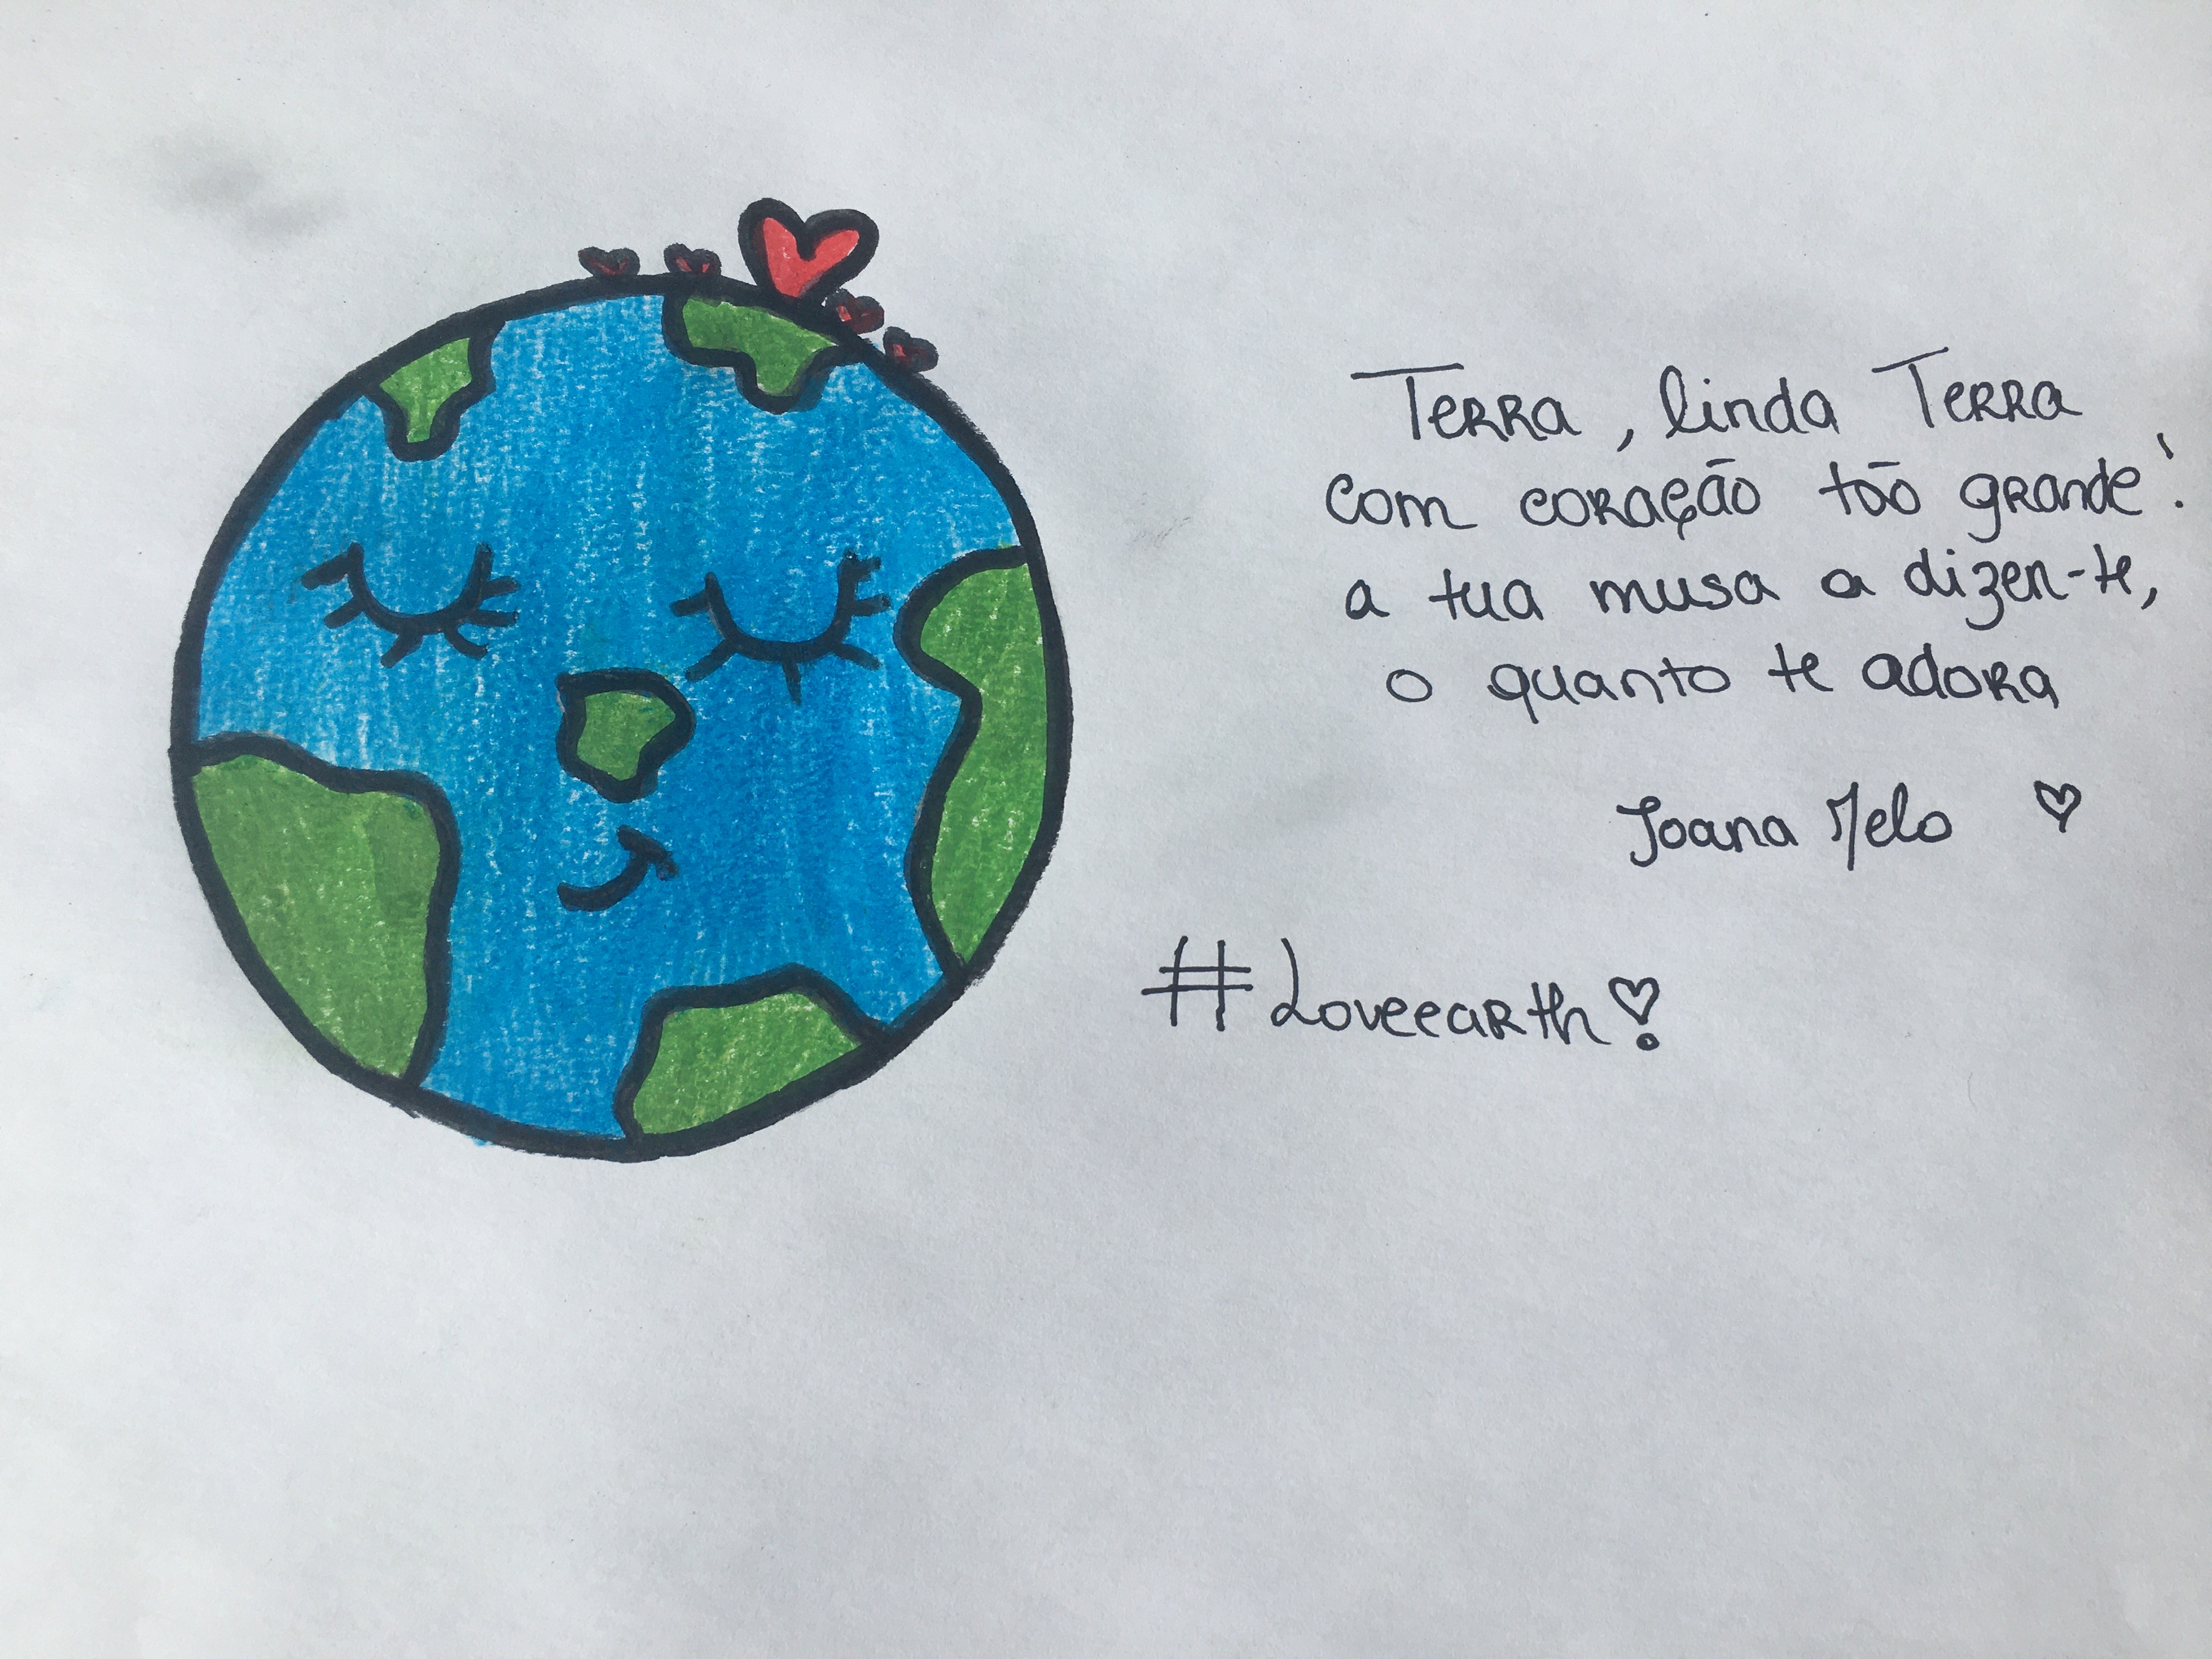 Terra, linda Terra
com coração tão grande!
a tua musa a dizer-te,
o quanto te adora
Joana Melo ♡
#Loveearth!